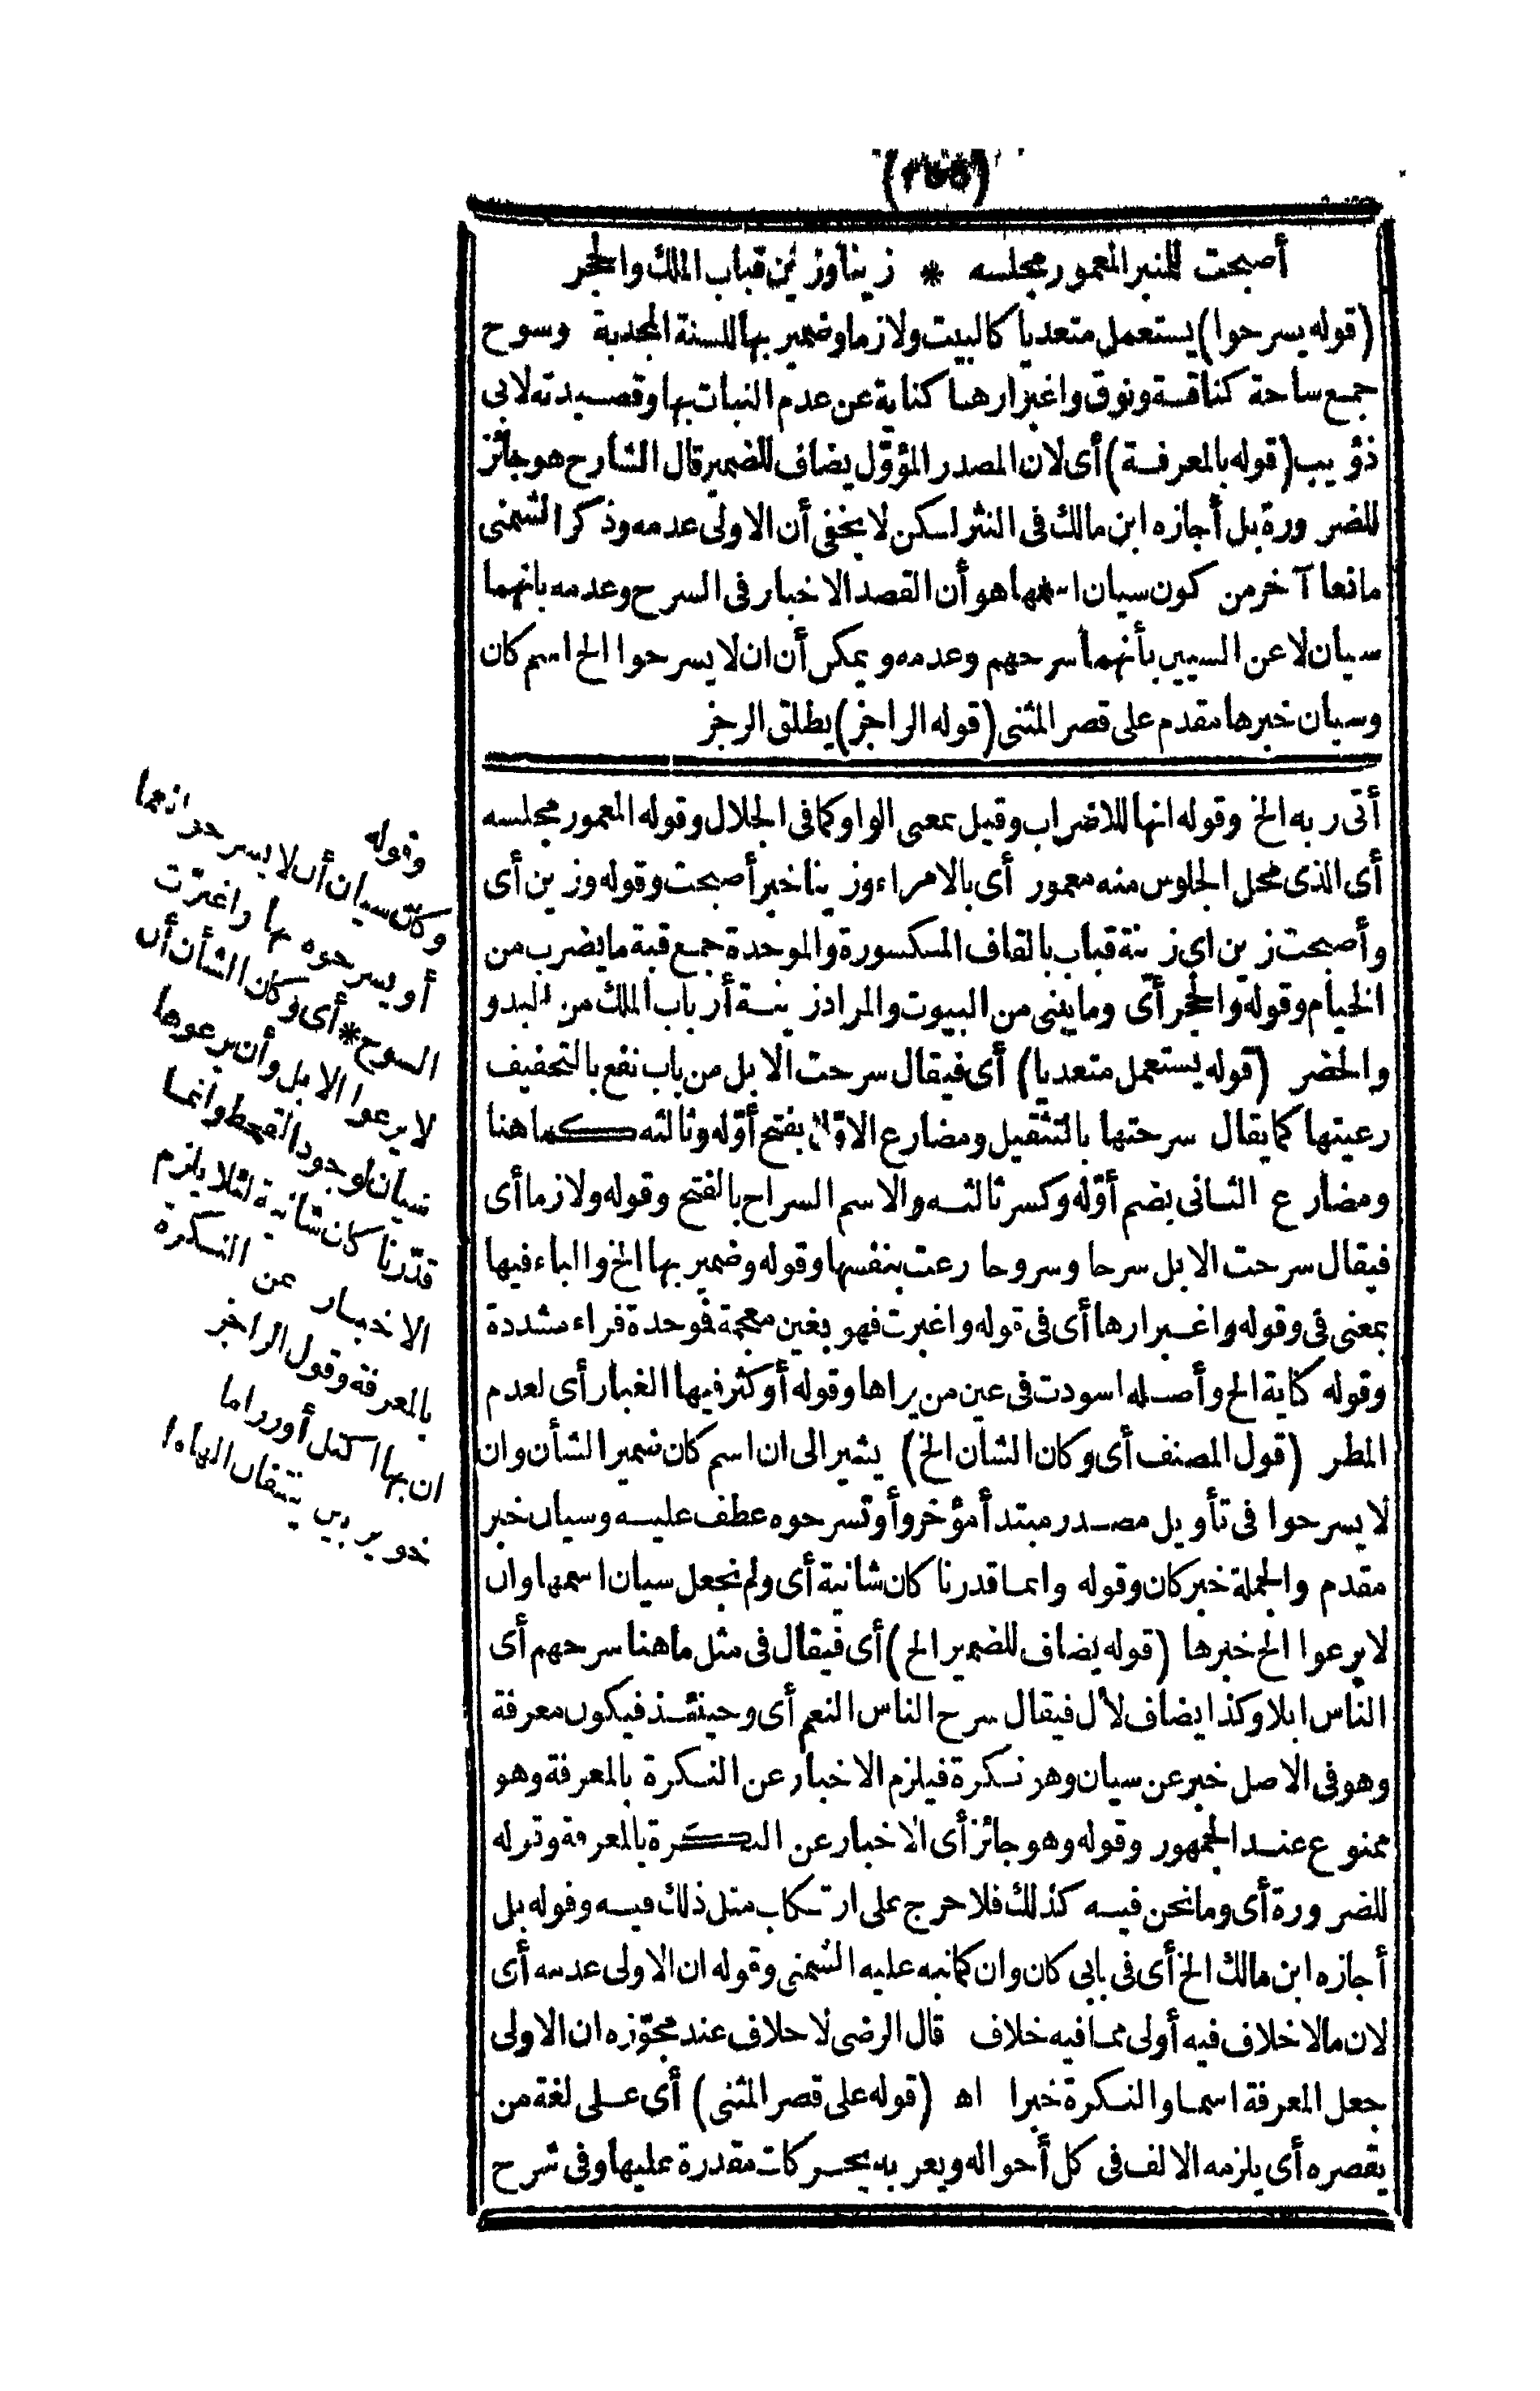 (٢٥٥)
أصبحت للمنبر المعمور مجلسه * زينا وزين قباب الملك والحجر
(قوله يسرحوا) يستعمل متعديا كالبيت ولازما وضمير بها للسنة المجدبة وسوح
جمع ساحة كناقة ونوق واغبرارها كناية عن عدم النبات بها وقصيدته لابى
ذؤيب (قوله بالمعرفة) أى لان المصدر المؤوّل يضاف للضمير قال الشارح هو جائز
للضرورة بل أجازه ابن مالك فى النثر لكن لا يخفى أن الاولى عدمه وذكر الشمنى
مانعا آخر من كون سيان اسمها هو أن القصد الاخبار فى السرح وعدمه بانهما
سيان لا عن السيين بأنهما سرحهم وعدمه ويمكن أن ان لا يسرحوا الخ اسم كان
وسيان خبرها مقدم على قصر المثنى (قوله الراجز) يطلق الرجز
أتى ربه الخ وقوله انها للاضراب وقيل بمعنى الواو كما فى الجلال وقوله المعمور مجلسه
أى الذى محل الجلوس منه معمور أى بالامراء وزينا خبر أصبحت وقوله وزين أى
وأصبحت زين اى زينة قباب بالقاف المكسورة والموحدة جمع قبة ما يضرب من
الخيام وقوله والحجر أى وما يبنى من البيوت والمراد زينة أرباب الملك من البدو
والحضر (قوله يستعمل متعديا) أى فيقال سرحت الابل من باب نفع بالتخفيف
رعيتها كما يقال سرحتها بالتثقيل ومضارع الاوّل بفتح أوّله وثالثه كما هنا
ومضارع الثانى بضم أوّله وكسر ثالثه والاسم السراح بالفتح وقوله ولازما أى
فيقال سرحت الابل سرحا وسروحا رعت بنفسها وقوله وضمير بها الخ والباء فيها
بمعنى فى وقوله واغبرارها أى فى قوله واغبرت فهو بغين معجمة فموحدة فراء مشددة
وقوله كناية الخ وأصله اسودت فى عين من يراها وقوله أو كثر فيها الغبار أى لعدم
المطر (قول المصنف أى وكان الشان الخ) يشير الى ان اسم كان ضمير الشأن وان
لا يسرحوا فى تأويل مصدر مبتدأ مؤخر وأو تسرحوه عطف عليه وسيان خبر
مقدم والجملة خبر كان وقوله وانما قدرنا كان شانية أى ولم نجعل سيان اسمها وان
لا يرعوا الخ خبرها (قوله يضاف للضمير الخ) أى فيقال فى مثل ما هنا سرحهم أى
الناس ابلا وكذا يضاف لأل فيقال سرح الناس النعم أى وحينئذ فيكون معرفة
وهو فى الاصل خبر عن سيان وهو نكرة فيلزم الاخبار عن النكرة بالمعرفة وهو
ممنوع عند الجمهور وقوله وهو جائز أى الاخبار عن النكرة بالمعرفة وقوله
للضرورة أى وما نحن فيه كذلك فلا حرج على ارتكاب مثل ذلك فيه وقوله بل
أجازه ابن مالك الخ أى فى بابى كان وان كما نبه عليه الشمنى وقوله ان الاولى عدمه أى
لان ما لا خلاف فيه أولى مما فيه خلاف قال الرضى لا خلاف عند مجوّزه ان الاولى
جعل المعرفة اسما والنكرة خبرا اه (قوله على قصر المثنى) أى على لغة من
يقصره أى يلزمه الالف فى كل أحواله ويعربه بحركات مقدرة عليها وفى شرح
وقوله
وكان سيان أن لا يسرحوا نعما
أو يسرحوه بها واغبرّت
السوح * أى وكان الشأن أن
لا يرعوا الابل وأن يرعوها
سيان لوجود القحط وانما
قدّرنا كان شانية لئلا يلزم
الاخبار عن النكرة
بالمعرفة وقول الراجز
ان بها اكتل أو رزاما
خويربين ينقفان الهاما